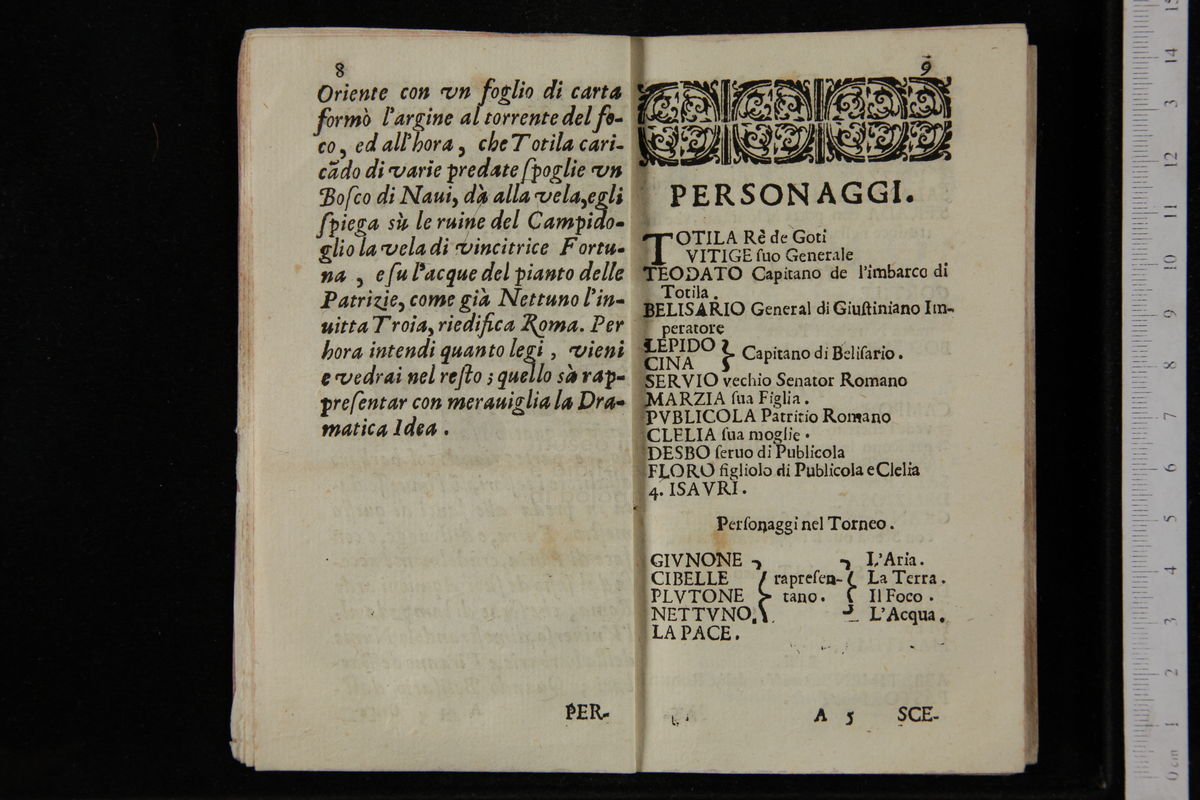 8
Oriente con vn foglio di carta
formò l'argine al torrente del fo-
co, ed all'hora, che Totila cari-
cãdo di varie predate ſpoglie vn
Boſco di Naui, dà alla vela, egli
ſpiega sù le ruine del Campido-
glio la vela di vincitrice Fortu-
na, e ſu l'acque del pianto delle
Patrizie, come già Nettuno l'in-
uitta Troia, riedifica Roma. Per
hora intendi quanto legi, vieni
e vedrai nel reſto; quello sà rap-
preſentar con merauiglia la Dra-
matica Idea.
PER-
9
PERSONAGGI.
TOTILA Rè de Goti
VITIGE ſuo Generale
TEODATO Capitano de l'imbarco di
Totila.
BELISARIO General di Giuſtiniano Im-
peratore
LEPIDO
CINA } Capitano di Beliſario.
SERVIO vechio Senator Romano
MARZIA ſua Figlia.
PVBLICOLA Patritio Romano
CLELIA ſua moglie.
DESBO ſeruo di Publicola
FLORO figliolo di Publicola e Clelia
4. ISAVRI.
Perſonaggi nel Torneo.
GIVNONE L'Aria.
CIBELLE } rapreſen- { La Terra.
PLVTONE } tano. { Il Foco.
NETTVNO. L'Acqua.
LA PACE.
A 5 SCE-